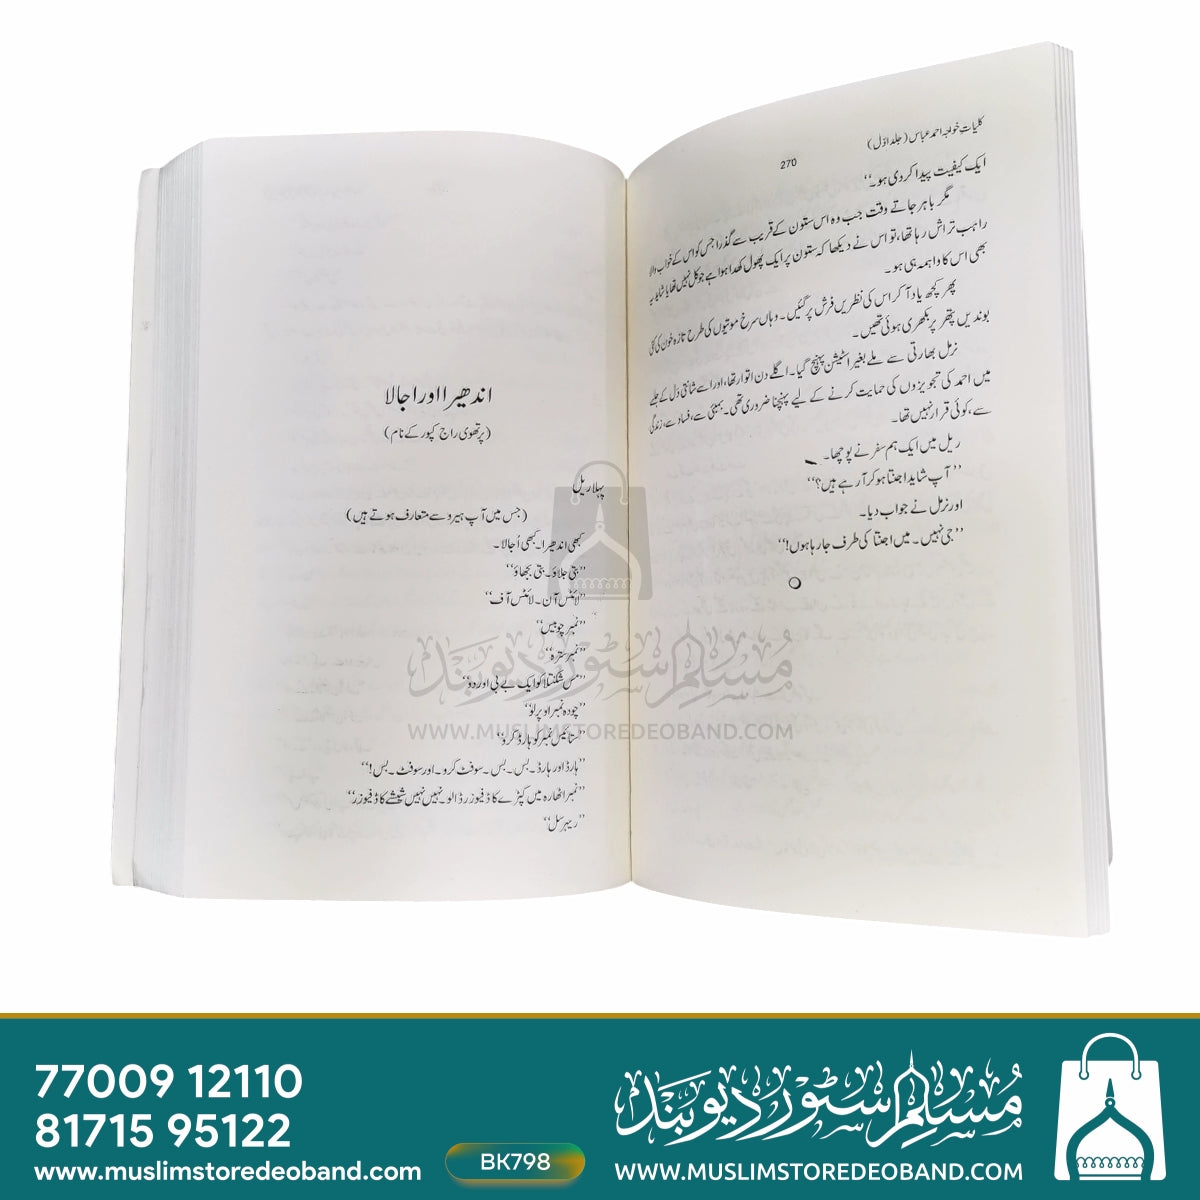 کلیاتِ خواجہ احمد عباس (جلد اوّل)
270
ایک کیفیت پیدا کر دی ہو۔‘‘
مگر باہر جاتے وقت جب وہ اس ستون کے قریب سے گذرا جس کو اس کے خواب والا
راہب تراش رہا تھا، تو اس نے دیکھا کہ ستون پر ایک پھول کھدا ہوا ہے جو کل نہیں تھا یا شاید یہ
بھی اس کا واہمہ ہی ہو۔
پھر کچھ یاد آ کر اس کی نظریں فرش پر گئیں۔ وہاں سرخ موتیوں کی طرح تازہ خون کی کئی
بوندیں پتھر پر بکھری ہوئی تھیں۔
نرمل بھارتی سے ملے بغیر اسٹیشن پہنچ گیا۔ اگلے دن اتوار تھا، اور اسے شانتی دَل کے جلسے
میں احمد کی تجویزوں کی حمایت کرنے کے لیے پہنچنا ضروری تھی۔ بمبئی سے، فساد سے، زندگی
سے، کوئی فرار نہیں تھا۔
ریل میں ایک ہم سفر نے پوچھا۔
’’آپ شاید اجنتا ہو کر آ رہے ہیں؟‘‘
اور نرمل نے جواب دیا۔
’’جی نہیں۔ میں اجنتا کی طرف جا رہا ہوں!‘‘
اندھیرا اور اجالا
(پرتھوی راج کپور کے نام)
پہلا ریل
(جس میں آپ ہیرو سے متعارف ہوتے ہیں)
کبھی اندھیرا۔ کبھی اُجالا۔
’’بتی جلاؤ۔ بتی بجھاؤ‘‘
’’لائٹس آن۔ لائٹس آف‘‘
’’نمبر چوبیس‘‘
’’نمبر سترہ‘‘
’’مس شکنتلا کو ایک بے بی اور دو‘‘
’’چودہ نمبر اوپر لو‘‘
’’ستائیس نمبر کو ہارڈ کرو‘‘
’’ہارڈ اور ہارڈ۔ بس۔ بس۔ سوفٹ کرو۔ اور سوفٹ۔ بس!‘‘
’’نمبر اٹھارہ میں کپڑے کا ڈفیوزر ڈالو۔ نہیں نہیں شیشے کا ڈفیوزر‘‘
’’ریہرسل‘‘
مُسلم سٹور دیوبند
WWW.MUSLIMSTOREDEOBAND.COM
77009 12110
81715 95122
www.muslimstoredeoband.com
BK798
مُسلم سٹور دیوبند
WWW.MUSLIMSTOREDEOBAND.COM